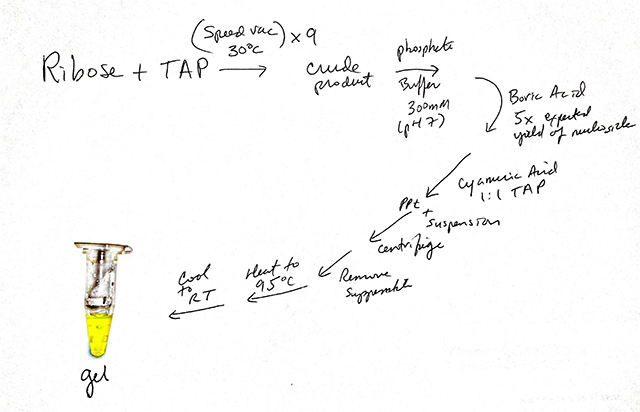 (Speed vac) x 9
30°C
Ribose + TAP
crude
product
phosphate
Buffer
300mM
(pH 7)
Boric Acid
5x expected
yield of nucleoside
Cyanuric Acid
1:1 TAP
PPt
+
suspension
centrifuge
Remove
Heat to
95°C
Cool
to
RT
gel